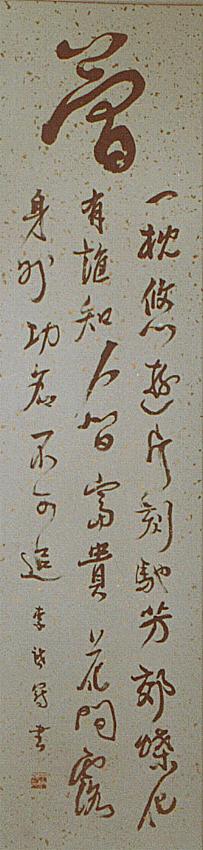 夢
一枕悠遊片刻馳芳郊蝶化
有誰知人間富貴花間露
身外功名不可追
李 書